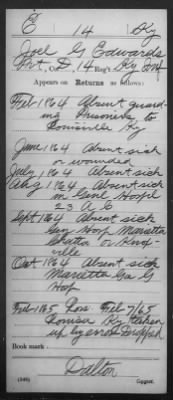 E 14 Ky
Joel G Edwards
Pvt, Co. D, 14 Reg't Ky Inf
Appears on Returns as follows:
Feb 1864 Absent guard-
ing Prisoners to
Louisville Ky
June 1864 Absent sick
or wounded
July 1864 Absent sick
Aug 1864 Absent sick
in Genl Hospl
23 A C
Sept 1864 Absent sick
Gen Hosp Marietta
Chatta or Knox-
ville
Oct 1864 Absent sick
Marietta Ga G
Hosp
Feb 1865 Loss Feb 7/65
Louisa Ky taken
up by error Dropped
Book mark:
Dalton
(546) Copyist.